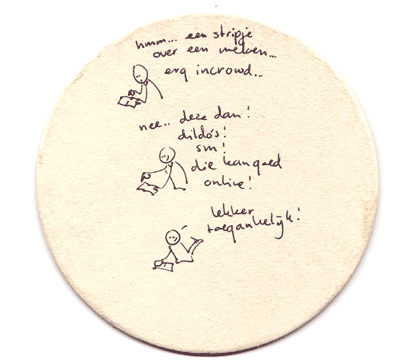 hmm... een stripje
over een meeuwen...
erg incrowd...
nee.. deze dan!
dildo's!
sm!
die kan goed
online!
lekker
toegankelijk!